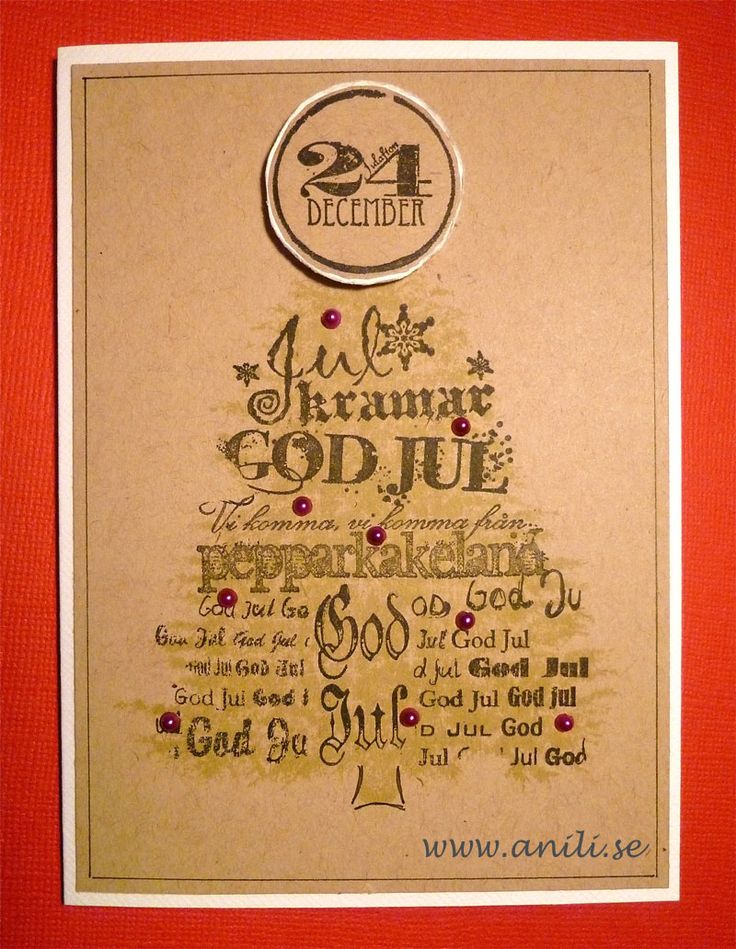 24
Julafton
DECEMBER
Jul
kramar
GOD JUL
Vi komma, vi komma från
pepparkakeland
God Jul Go
God
OD God Ju
God Jul God Jul
Jul God Jul
God Jul God Jul
d Jul God Jul
God Jul God
Jul
God Jul God Jul
God Ju
D JUL God
Jul God Jul God
www.anili.se